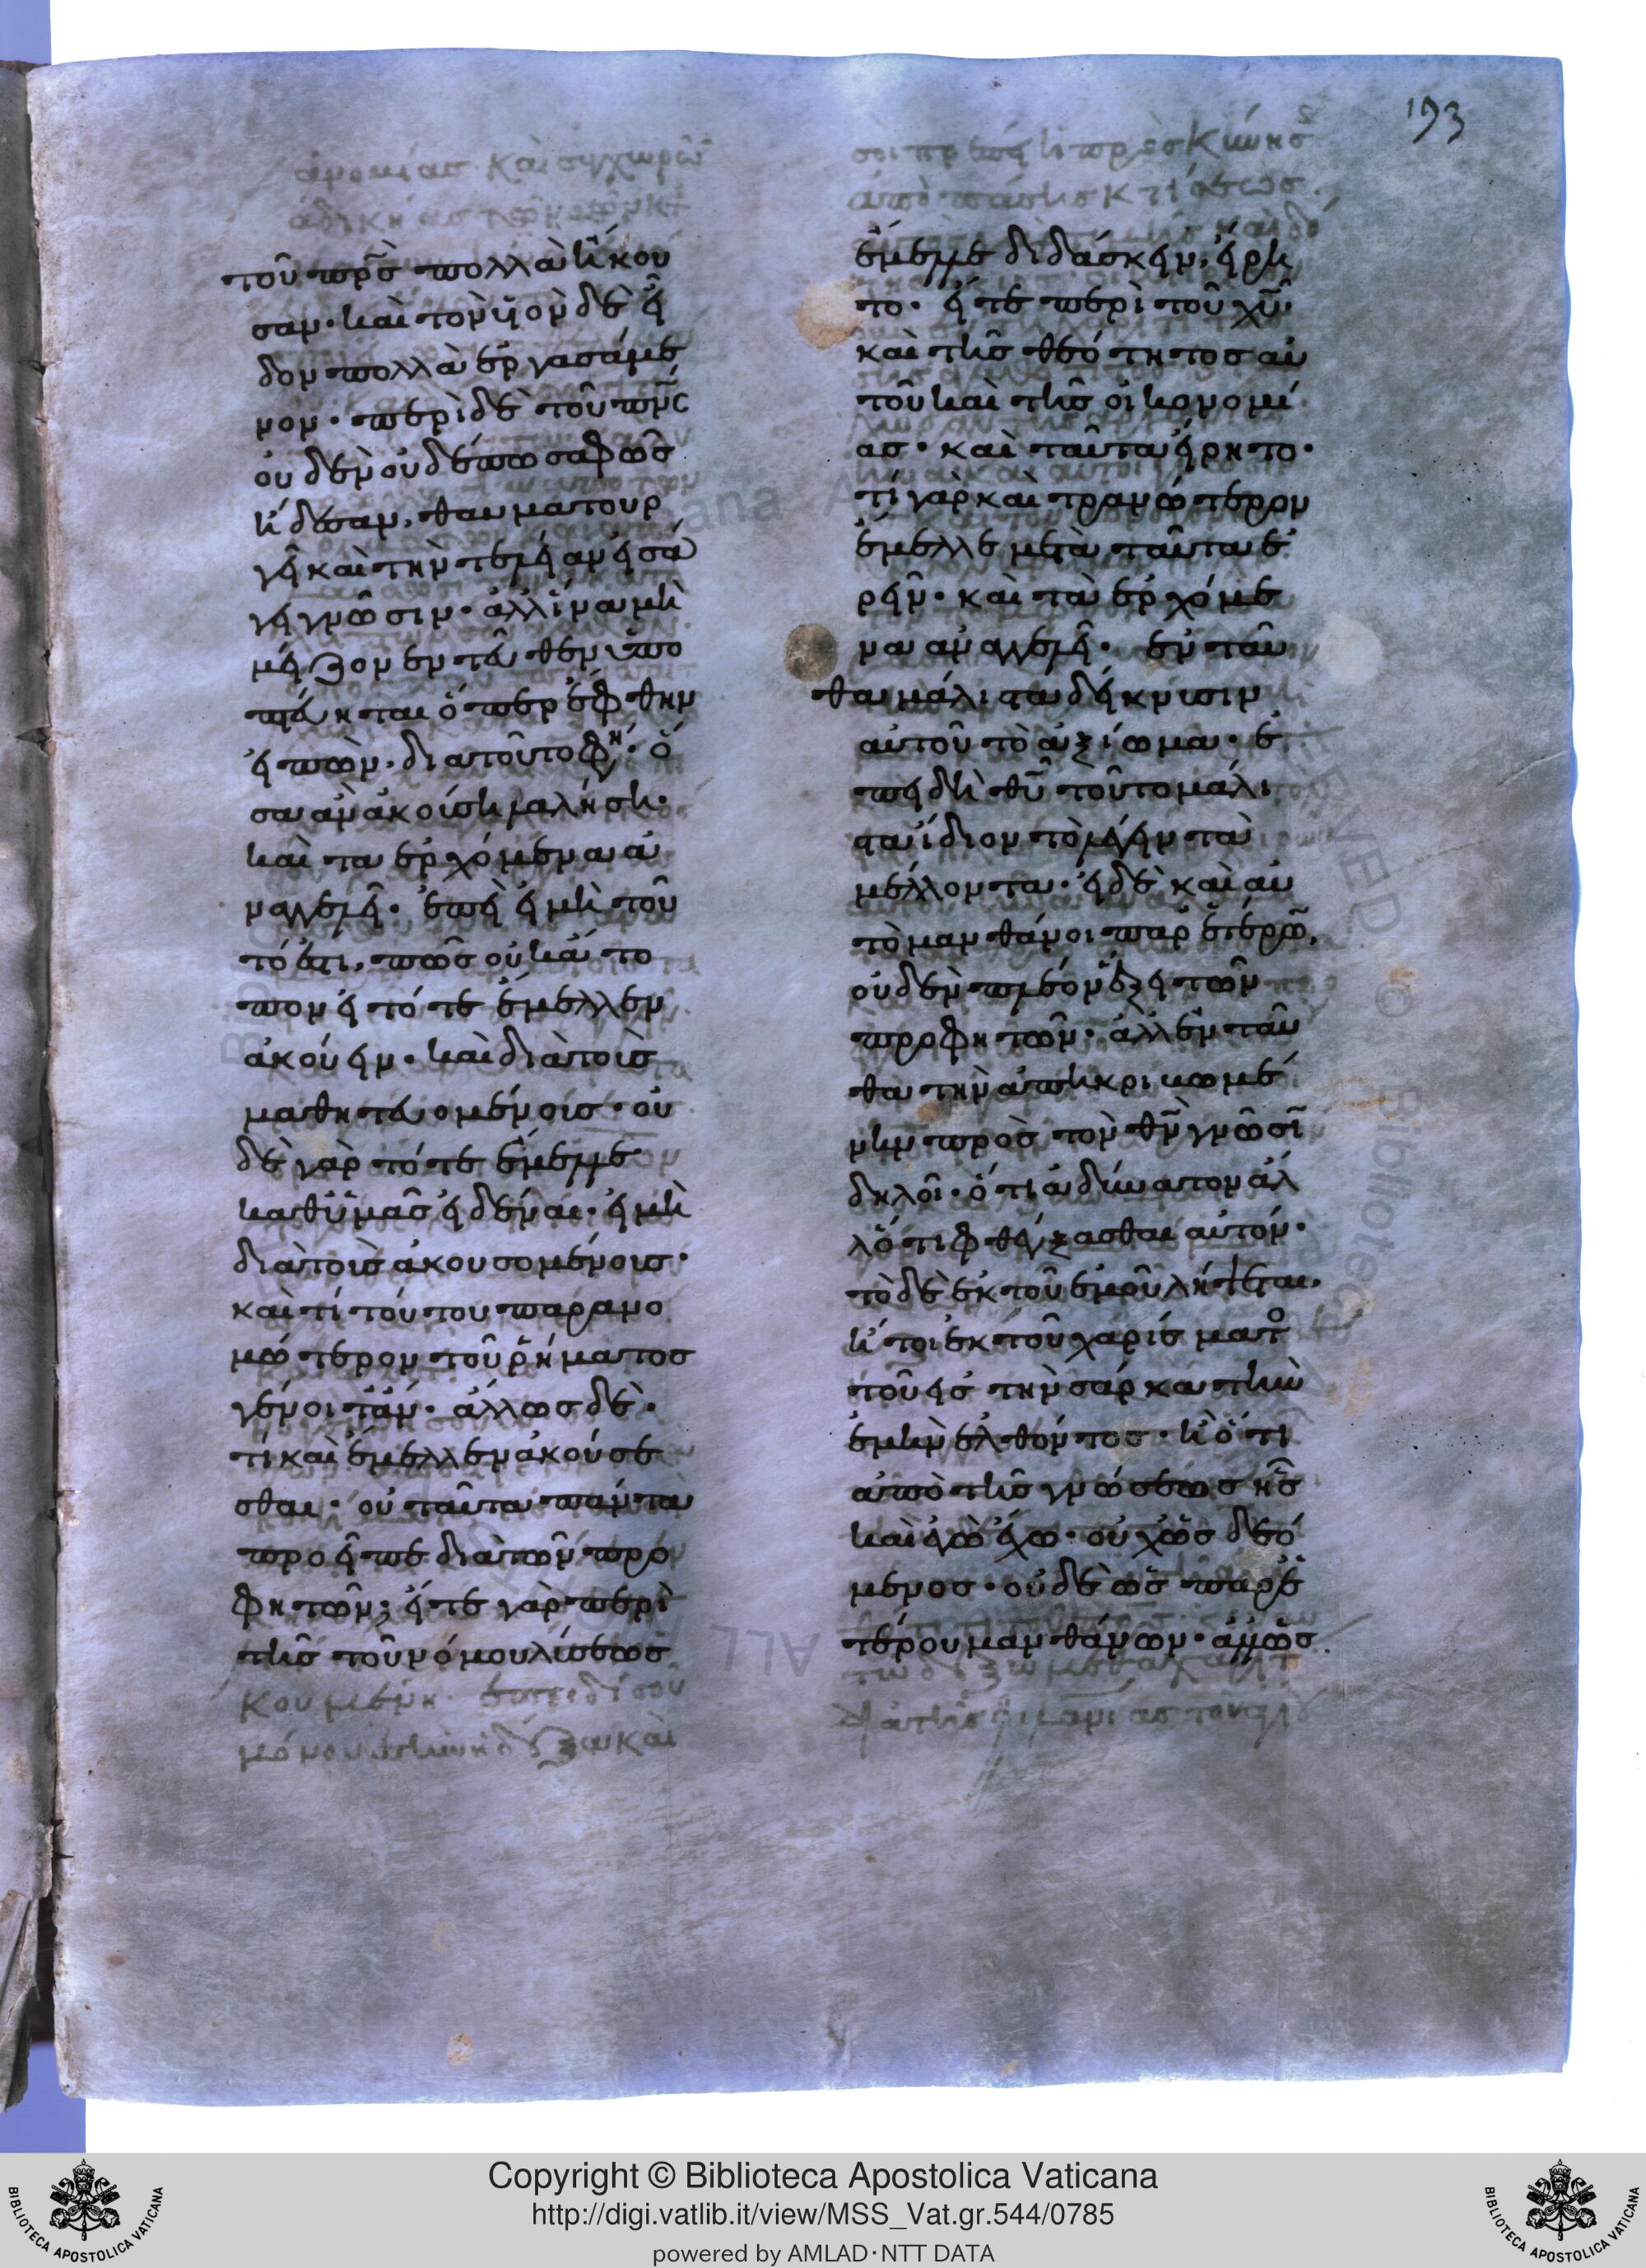 193
ἀνομίας καὶ συγχωρῶν
τοῦ πρς πολλὰ ἤκου
σαν· καὶ τὸν υἱὸν δὲ εἶ
δον πολλὰ ἐργασάμε
νον· περὶ δὲ τοῦ πνς
οὐδὲν οὐδέπω σαφῶς
ἤδεσαν, θαυματουρ
γεῖ καὶ τὴν τελείαν εἰσά
γει γνῶσιν· ἀλλ' ἵνα μὴ
μεῖζον ἐντεῦθεν ὑπο
πτεύηται ὅπερ ἔφθην
εἰπών· διὰ τοῦτο φη· ὅ
σα ἂν ἀκούσῃ λαλήσῃ·
καὶ τὰ ἐρχόμενα ἀ
ναγγελεῖ· ἐπεὶ εἰ μὴ τοῦ
τό ἐστι, πῶς οὐκ ἄτο
πον εἰ τότε ἔμελλεν
ἀκούειν· καὶ διὰ τοὺς
μαθητευομένους· οὐ
δὲ γὰρ τότε ἔμελλε
καθ' ὑμᾶς εἰδέναι· εἰ μὴ
διὰ τοὺς ἀκουσομένους·
καὶ τί τούτου παρανο
μώτερον τοῦ ῥήματος
γένοιτ' ἄν· ἄλλως δὲ·
τί καὶ ἔμελλεν ἀκούσε
σθαι· οὐ ταῦτα πάντα
προεῖπε διὰ τῶν προ
φητῶν; εἴτε γὰρ περὶ
τῆς τοῦ νόμου λύσεως
μόνου δόξα καὶ
ἀπὸ πάσης κτίσεως.
ἔμελλε διδάσκειν, εἴρη
το· εἴτε περὶ τοῦ χυ·
καὶ τῆς θεότητος αὐ
τοῦ καὶ τῆς οἰκονομί
ας· καὶ ταῦτα εἴρητο·
τί γὰρ καὶ τρανώτερον
ἔμελλε μετὰ ταῦτα ἐ
ρεῖν· καὶ τὰ ἐρχόμε
να ἀναγγελεῖ· ἐνταῦ
θα μάλιστα δείκνυσιν
αὐτοῦ τὸ ἀξίωμα· ἐ
πειδὴ θυ τοῦτο μάλι
στα ἴδιον τὸ λέγειν τὰ
μέλλοντα· εἰ δὲ καὶ αὐ
τὸ μανθάνοι παρ' ἑτέρων,
οὐδὲν πλέον ἕξει τῶν
προφητῶν· ἀλλ' ἐνταῦ
θα τὴν ἀπηκριβωμέ
νην πρὸς τὸν θν γνῶσιν
δηλοῖ· ὅτι ἀδύνατον ἄλ
λό τι φθέγξασθαι αὐτόν·
τὸ δὲ ἐκ τοῦ ἐμοῦ λήψεται·
ἤτοι ἐκ τοῦ χαρίσματος
τοῦ εἰς τὴν σάρκα τὴν
ἐμὴν ἐλθόντος· ἢ ὅτι
ἀπὸ τῆς γνώσεως ἧς
καὶ ἐγὼ ἔχω· οὐχ ὡς δεό
μενος· οὐδὲ ὡς παρ' ἑ
τέρου μανθάνων· ἀλλ' ὡς
Copyright © Biblioteca Apostolica Vaticana
http://digi.vatlib.it/view/MSS_Vat.gr.544/0785
powered by AMLAD·NTT DATA
BIBLIOTECA APOSTOLICA VATICANA
BIBLIOTECA APOSTOLICA VATICANA